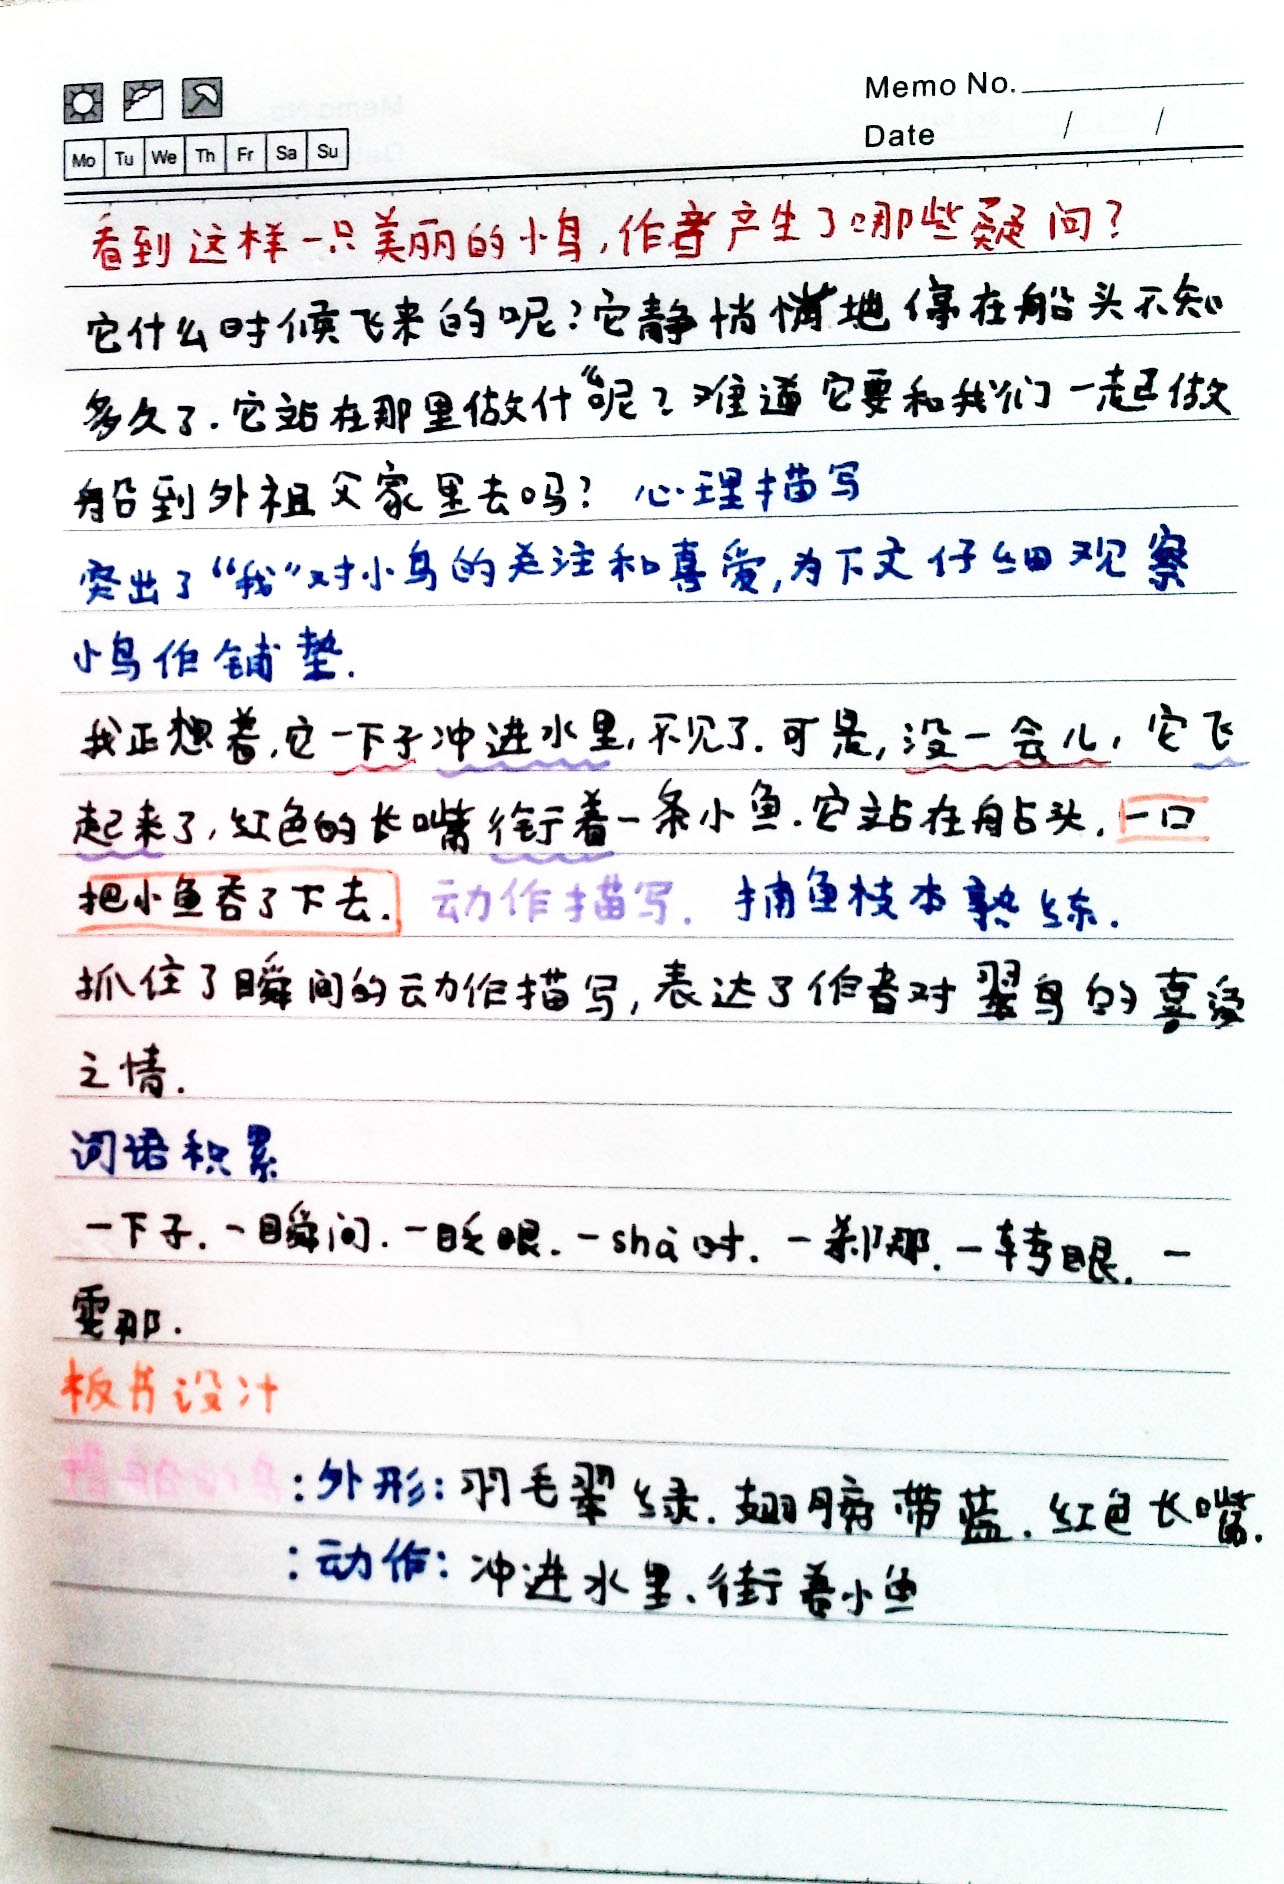 Memo No.
Date / /
Mo Tu We Th Fr Sa Su
看到这样一只美丽的小鸟,作者产生了哪些疑问?
它什么时候飞来的呢?它静悄悄地停在船头不知
多久了.它站在那里做什么呢?难道它要和我们一起做
船到外祖父家里去吗? 心理描写
突出了“我”对小鸟的关注和喜爱,为下文仔细观察
小鸟作铺垫.
我正想着,它一下子冲进水里,不见了.可是,没一会儿,它飞
起来了,红色的长嘴衔着一条小鱼.它站在船头,一口
把小鱼吞了下去. 动作描写. 捕鱼技本熟练.
抓住了瞬间的动作描写,表达了作者对翠鸟的喜爱
之情.
词语积累
一下子.一瞬间.一眨眼.一shà时.一刹那.一转眼.一
霎那.
板书设计
:外形:羽毛翠绿.翅膀带蓝.红色长嘴.
:动作:冲进水里、衔着小鱼